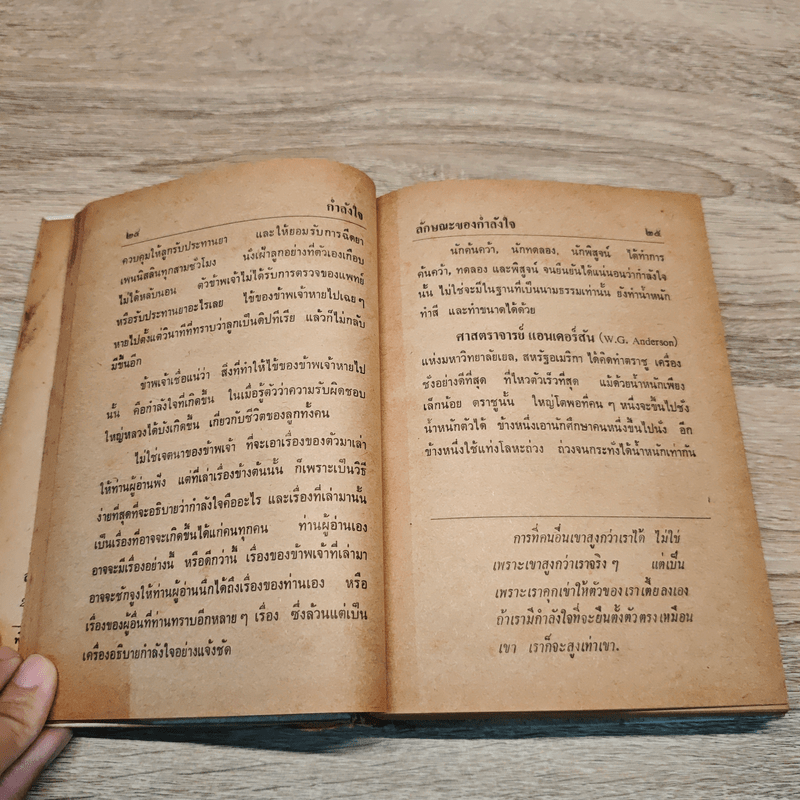 ๒๔
กำลังใจ
ควบคุมให้ลูกรับประทานยา และให้ยอมรับการฉีดยา
เพนนิสลินทุกสามชั่วโมง นั่งเฝ้าลูกอย่างที่ตัวเองเกือบ
ไม่ได้หลับนอน ตัวข้าพเจ้าไม่ได้รับการตรวจของแพทย์
หรือรับประทานยาอะไรเลย ไข้ของข้าพเจ้าหายไปเฉยๆ
หายไปตั้งแต่วินาทีที่ทราบว่าลูกเป็นดิปทีเรีย แล้วก็ไม่กลับ
มีขึ้นอีก
ข้าพเจ้าเชื่อแน่ว่า สิ่งที่ทำให้ไข้ของข้าพเจ้าหายไป
นั้น คือกำลังใจที่เกิดขึ้น ในเมื่อรู้ตัวว่าความรับผิดชอบ
ใหญ่หลวงได้บังเกิดขึ้น เกี่ยวกับชีวิตของลูกทั้งคน
ไม่ใช่เจตนาของข้าพเจ้า ที่จะเอาเรื่องของตัวมาเล่า
ให้ท่านผู้อ่านฟัง แต่ที่เล่าเรื่องข้างต้นนั้น ก็เพราะเป็นวิธี
ง่ายที่สุดที่จะอธิบายว่ากำลังใจคืออะไร และเรื่องที่เล่ามานั้น
เป็นเรื่องที่อาจจะเกิดขึ้นได้แก่คนทุกคน ท่านผู้อ่านเอง
อาจจะมีเรื่องอย่างนี้ หรือดีกว่านี้ เรื่องของข้าพเจ้าที่เล่ามา
อาจจะชักจูงให้ท่านผู้อ่านนึกได้ถึงเรื่องของท่านเอง หรือ
เรื่องของผู้อื่นที่ท่านทราบอีกหลายๆ เรื่อง ซึ่งล้วนแต่เป็น
เครื่องอธิบายกำลังใจอย่างแจ้งชัด
ลักษณะของกำลังใจ
๒๕
นักค้นคว้า, นักทดลอง, นักพิสูจน์ ได้ทำการ
ค้นคว้า, ทดลอง และพิสูจน์ จนยืนยันได้แน่นอนว่ากำลังใจ
นั้น ไม่ใช่จะมีในฐานที่เป็นนามธรรมเท่านั้น ยังทำน้ำหนัก
ทำสี และทำขนาดได้ด้วย
ศาสตราจารย์ แอนเดอร์สัน (W.G. Anderson)
แห่งมหาวิทยาลัยเยล, สหรัฐอเมริกา ได้คิดทำตราชู เครื่อง
ชั่งอย่างดีที่สุด ที่ไหวตัวเร็วที่สุด แม้ด้วยน้ำหนักเพียง
เล็กน้อย ตราชูนั้น ใหญ่โตพอที่คนๆ หนึ่งจะขึ้นไปชั่ง
น้ำหนักตัวได้ ข้างหนึ่งเอานักศึกษาคนหนึ่งขึ้นไปนั่ง อีก
ข้างหนึ่งใช้แท่งโลหะถ่วง ถ่วงจนกระทั่งได้น้ำหนักเท่ากัน
การที่คนอื่นเขาสูงกว่าเราได้ ไม่ใช่
เพราะเขาสูงกว่าเราจริง ๆ แต่เป็น
เพราะเราคุกเข่าให้ตัวของเราเตี้ยลงเอง
ถ้าเรามีกำลังใจที่จะยืนตั้งตัวตรงเหมือน
เขา เราก็จะสูงเท่าเขา.